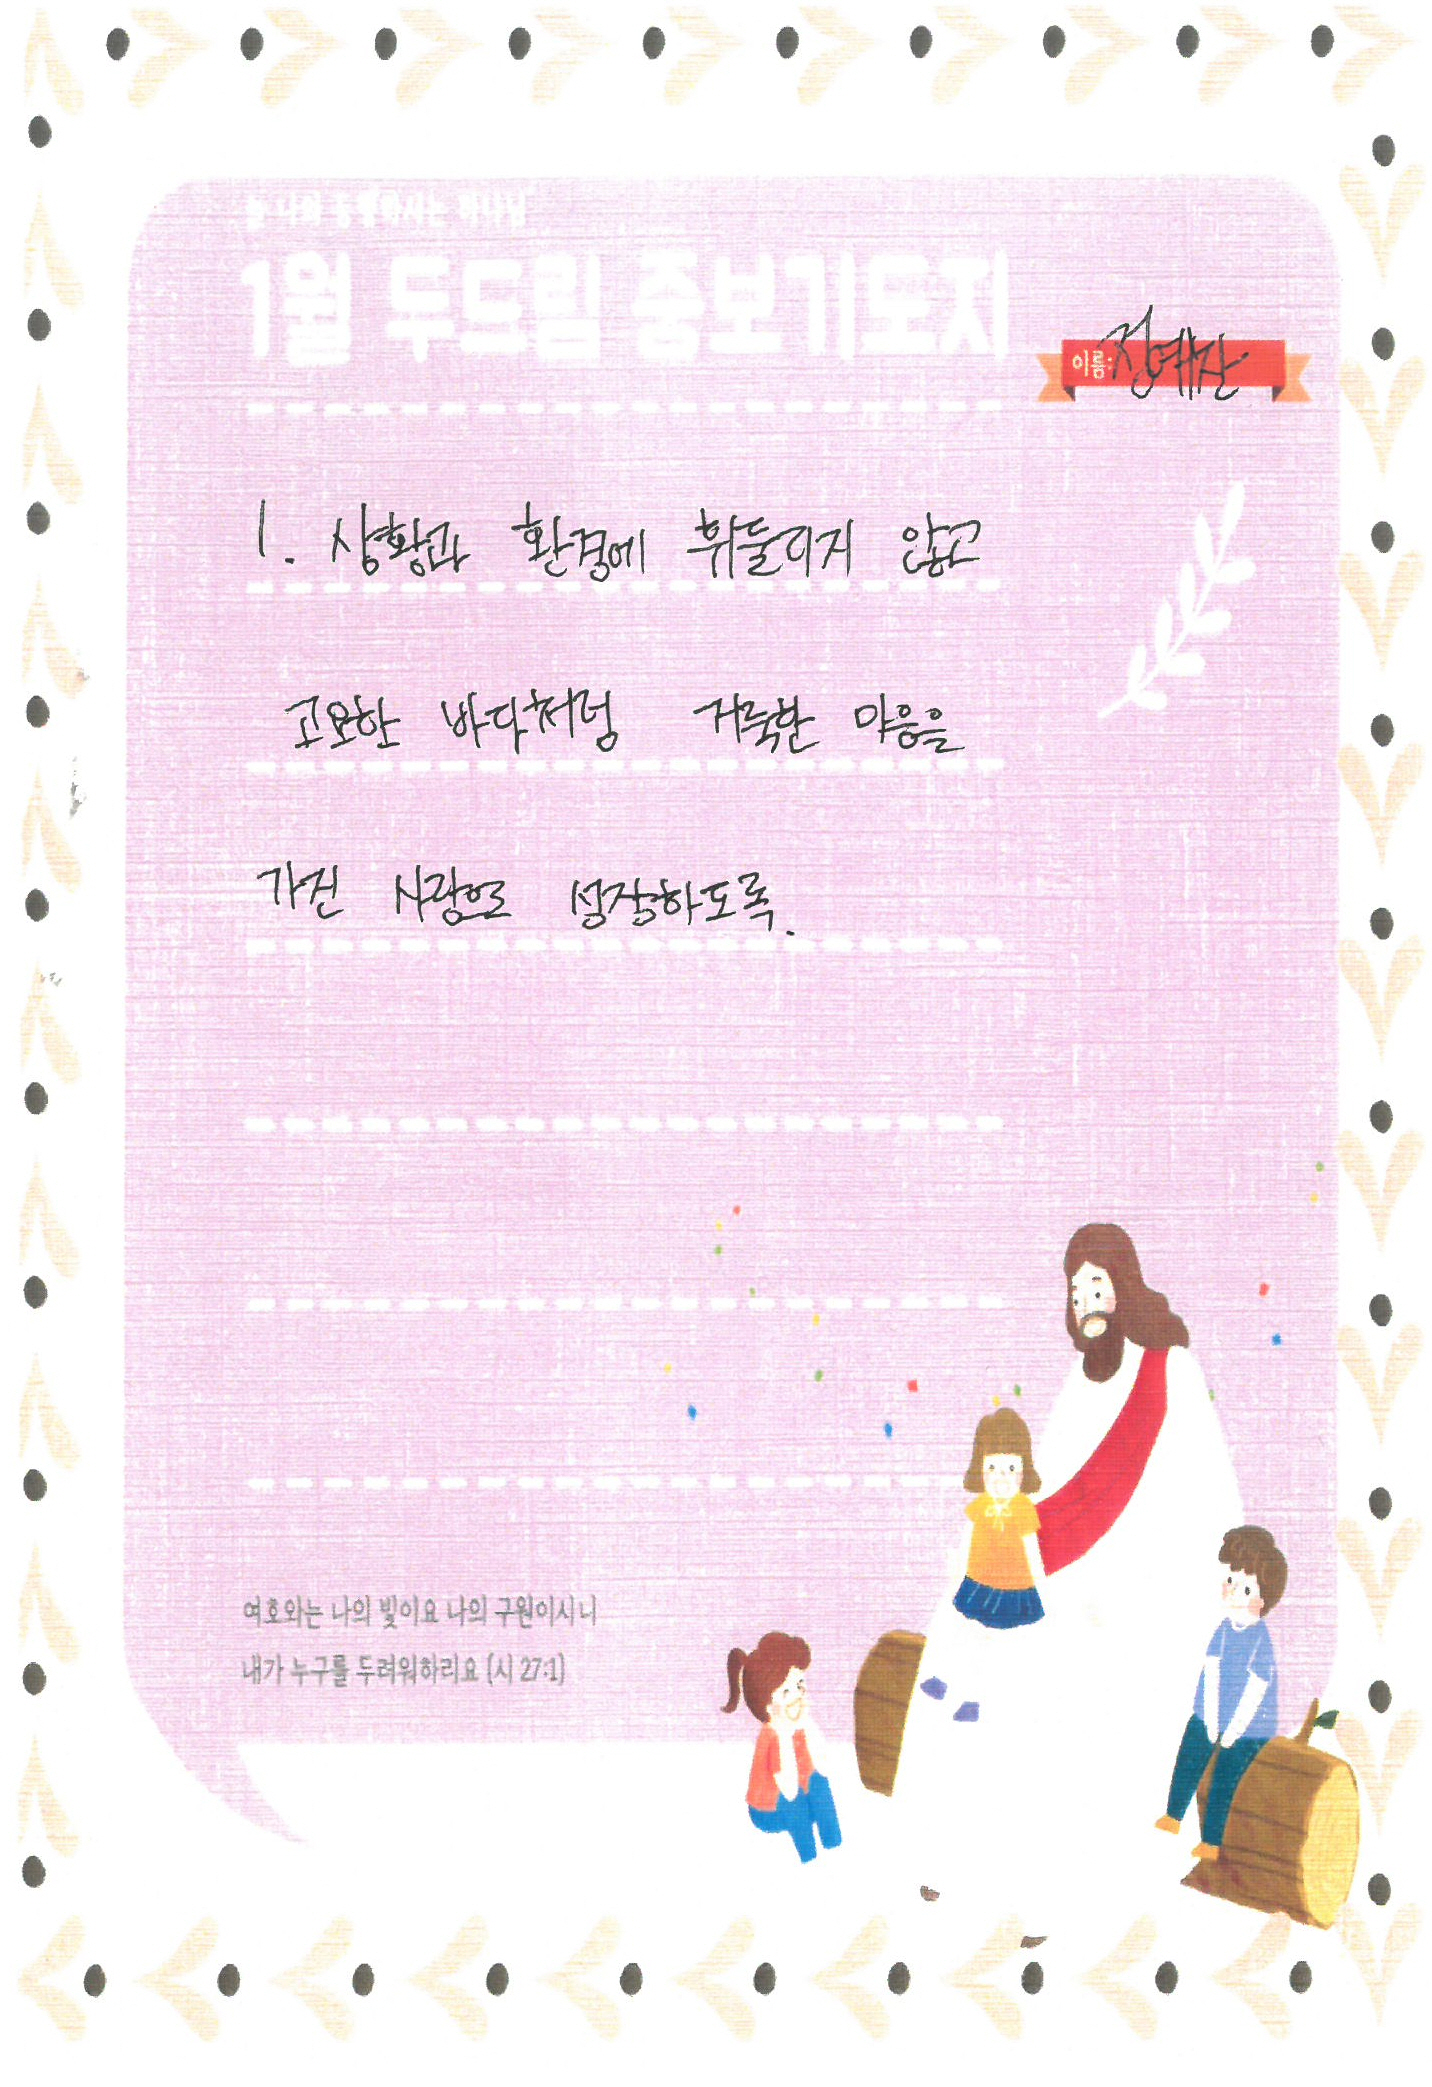 1월 두드림 중보기도지
이름: 정예찬
1. 상황과 환경에 휘둘리지 않고
고요한 바다처럼 거룩한 마음을
가진 사랑으로 성장하도록.
여호와는 나의 빛이요 나의 구원이시니
내가 누구를 두려워하리요 (시 27:1)